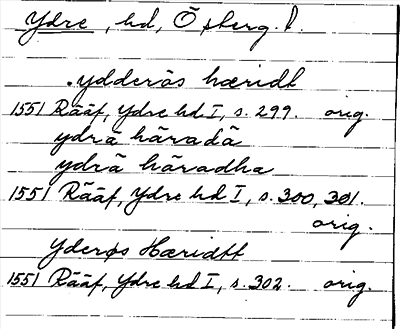 Ydre, hd, Östberg. l.
.ydderös hæridt
1551 Rääf, Ydre hd I, s. 299. orig.
ydrä häradä
ydrä häradha
1551 Rääf, Ydre hd I, s. 300, 301.
orig.
Yderøs Hæridtt
1551 Rääf, Ydre hd I, s. 302. orig.